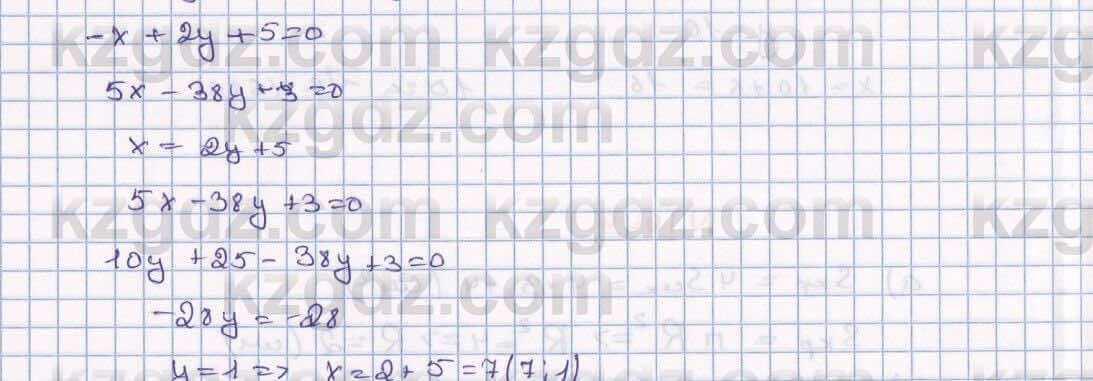 -x + 2y + 5 = 0
5x - 38y + 3 = 0
x = 2y + 5
5x - 38y + 3 = 0
10y + 25 - 38y + 3 = 0
-28y = -28
y = 1 => x = 2 + 5 = 7 (7; 1)
kzgdz.com
kzgdz.com
kzgdz.com
kzgdz.com
kzgdz.com
kzgdz.com